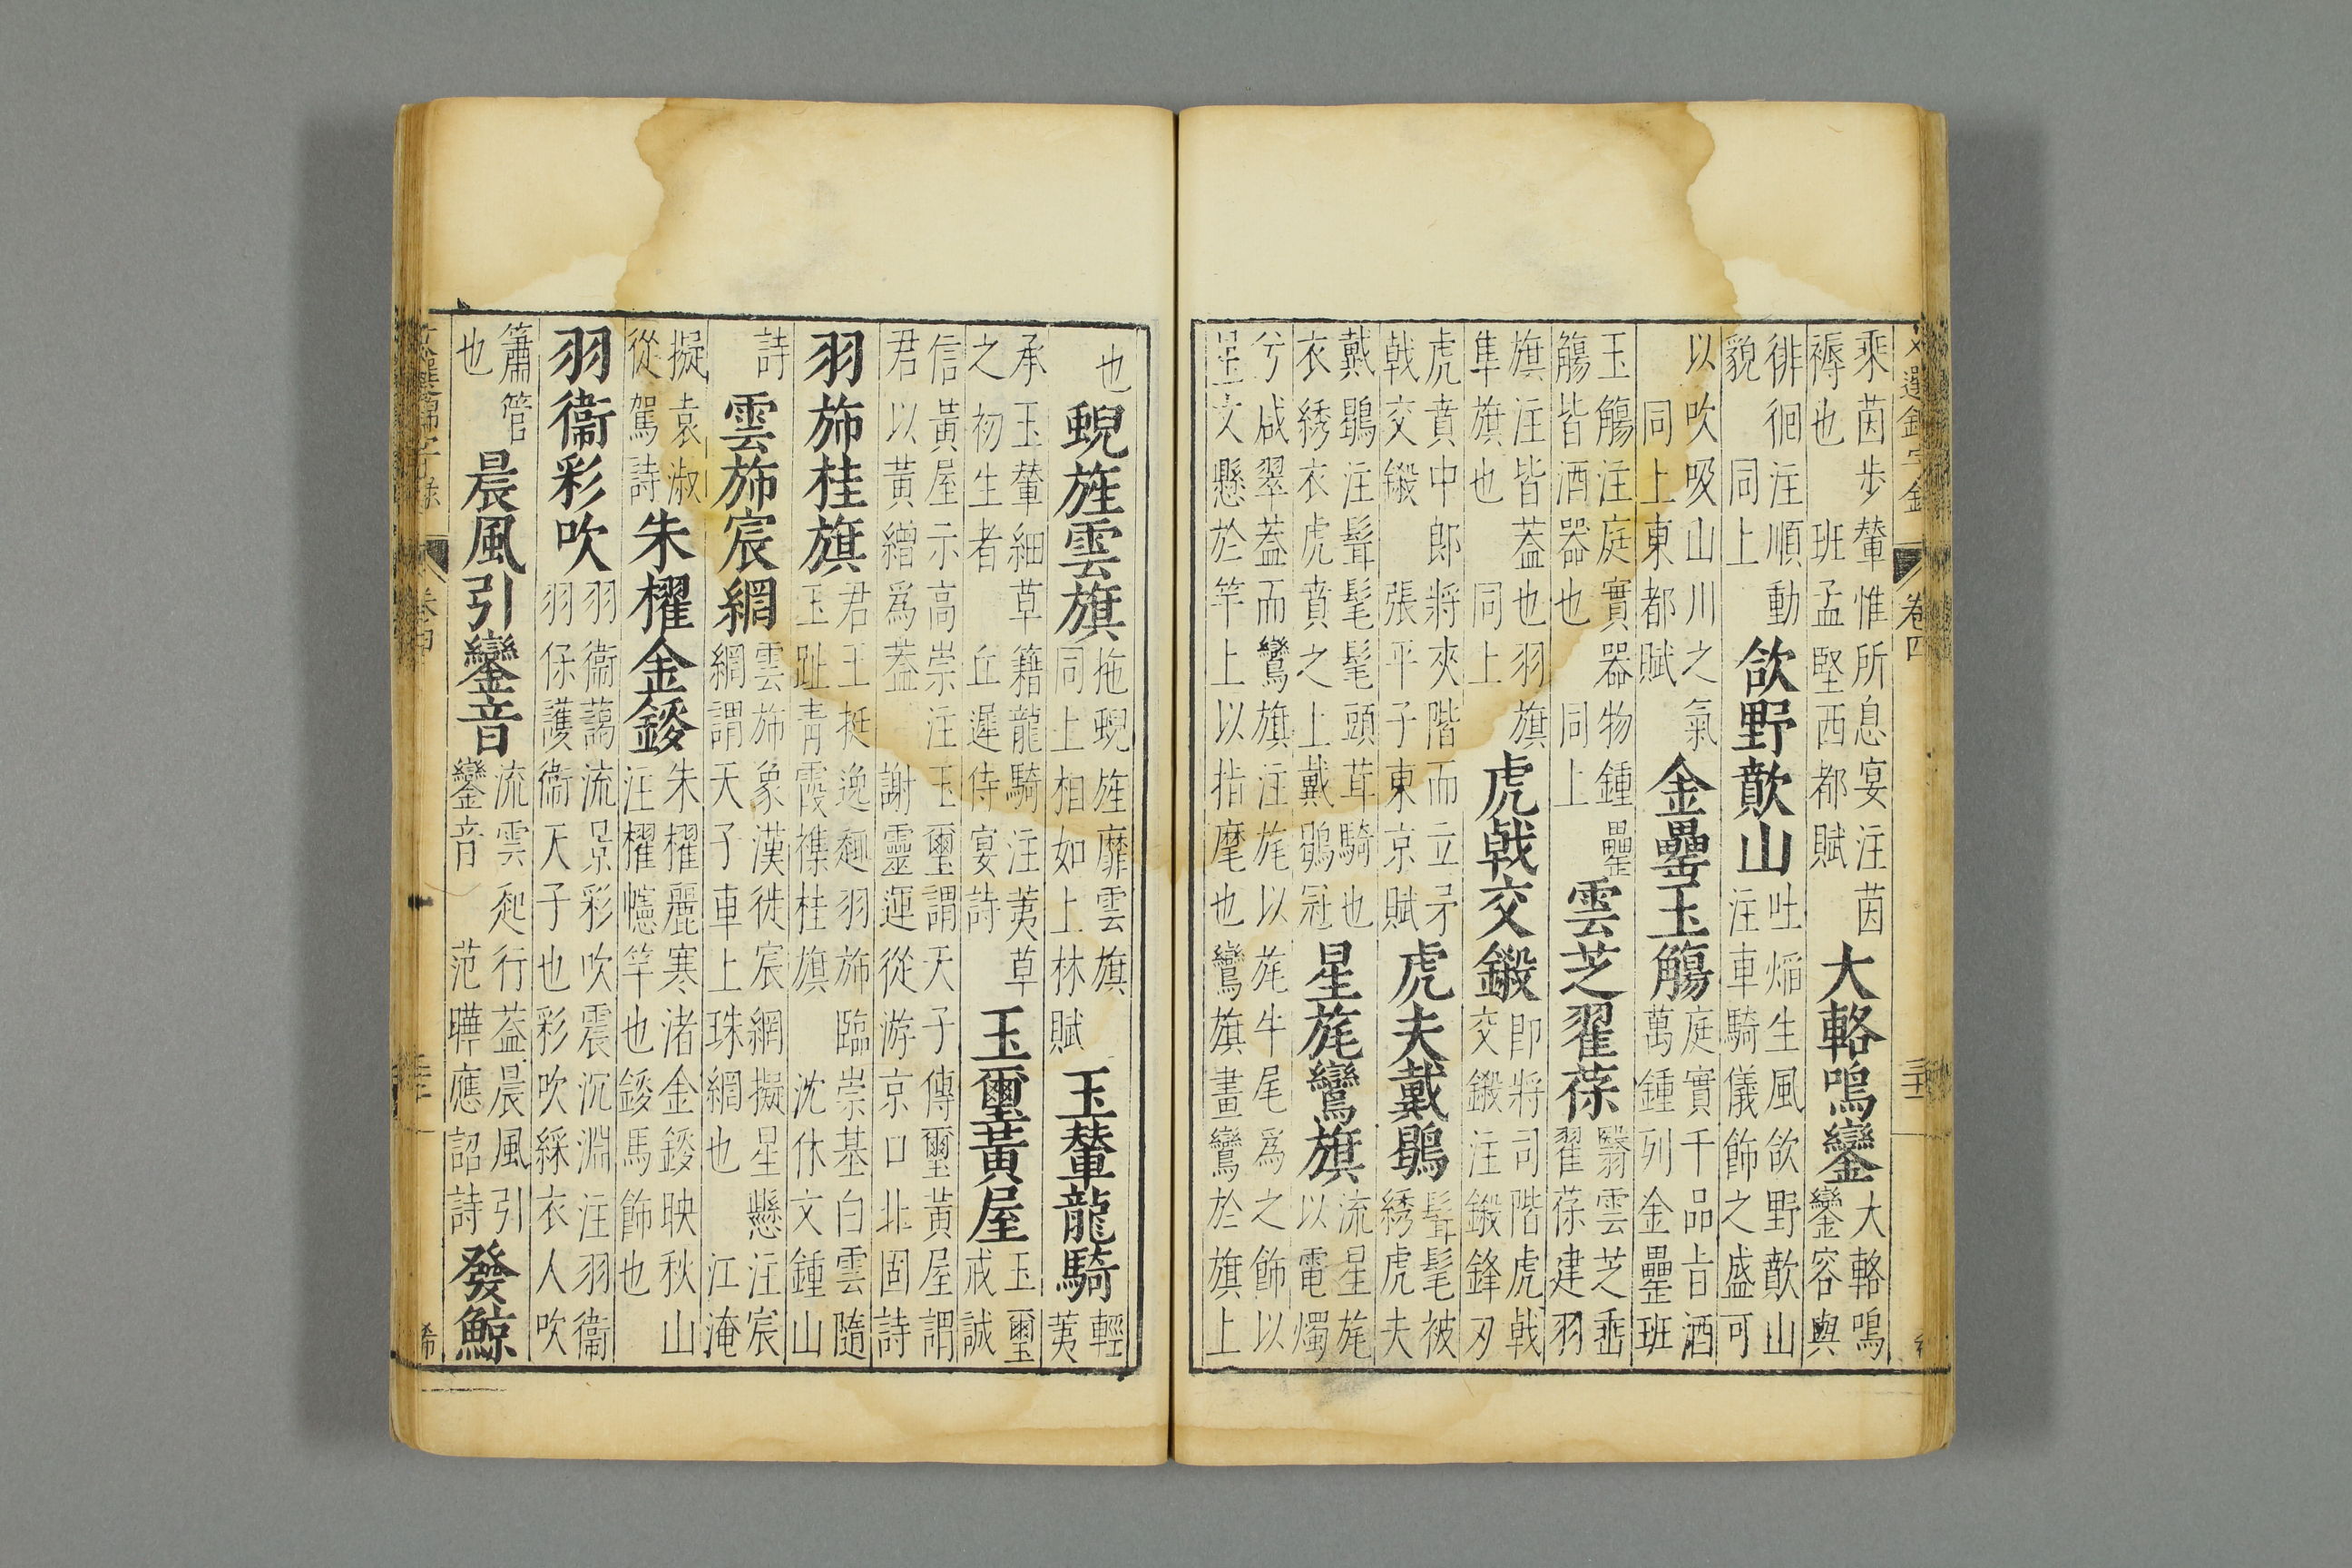 文選錦字錄 卷四
乘茵步輦惟所息宴注茵褥也 班孟堅西都賦 大輅鳴鑾 大輅鳴鑾容與
徘徊注順動貌 同上 欱野歕山 吐熖生風欱野歕山注車騎儀飾之盛可
以吹吸山川之氣 同上東都賦 金罍玉觴 庭實千品旨酒萬鍾列金罍班
玉觴注庭實器物鍾罍觴皆酒器也 同上 雲芝翟葆 翳雲芝垂翟葆建羽
旗注皆蓋也羽旗隼旗也 同上 虎戟交鎩 即將司階虎戟交鎩注鎩鋒刃
虎賁中郎將夾階而立矛戟交鎩 張平子東京賦 虎夫戴鶡 髶髦被綉虎夫
戴鶡注髶髦髦頭茸騎也衣綉衣虎賁之上戴鶡冠 星旄鸞旗 流星旄以電燭
兮咸翠蓋而鸞旗注旄以旄牛尾爲之飾以星文懸於竿上以指麾也鸞旗畫鸞於旗上
也 蜺旌雲旗 拖蜺旌靡雲旗同上相如上林賦 玉輦龍騎 輕荑
承玉輦細草籍龍騎注荑草之初生者 丘遲侍宴詩 玉璽黃屋 玉璽戒誠
信黃屋示高崇注玉璽謂天子傳璽黃屋謂君以黃繒爲葢 謝靈運從游京口北固詩
羽斾桂旗 君王挺逸趣羽斾臨崇基白雲隨玉趾青霞襍桂旗 沈休文鍾山
詩 雲斾宸網 雲斾象漢徙宸網擬星懸注宸網謂天子車上珠網也 江淹
擬袁淑從駕詩 朱櫂金鍐 朱櫂麗寒渚金鍐映秋山注櫂幰竿也鍐馬飾也
羽衞彩吹 羽衞藹流景彩吹震沉淵注羽衞羽保護衞天子也彩吹綵衣人吹
簫管也 晨風引鑾音 流雲起行葢晨風引鑾音 范曄應詔詩 發鯨
文選錦字錄 卷四